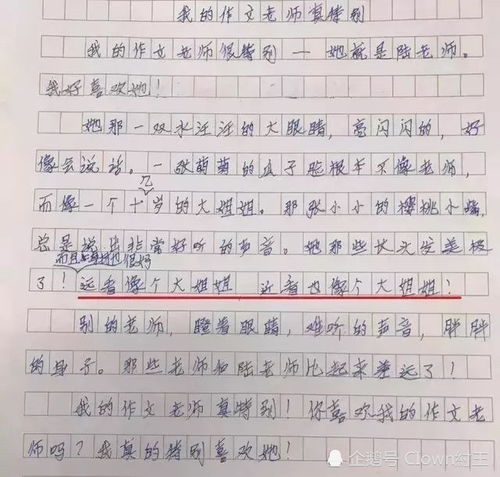 我的作文老师真特别
我的作文老师很特别——她就是陆老师。
我好喜欢她！
她那一双水汪汪的大眼睛，亮闪闪的，好
像会说话。一张萌萌的瓜子脸根本不像老师，
几
而像一个十岁的大姐姐。那张小小的樱桃小嘴，
总是说出非常好听的声音。她那些长头发美极
而且身材也很好
了！远看像个大姐姐 近看也像个大姐姐！
别的老师，瞪着眼睛，难听的声音，胖胖
的身子。那些老师和陆老师比起来差远了！
我的作文老师真特别！你喜欢我的作文老
师吗？我真的特别喜欢她！
企鹅号 Clown纣王